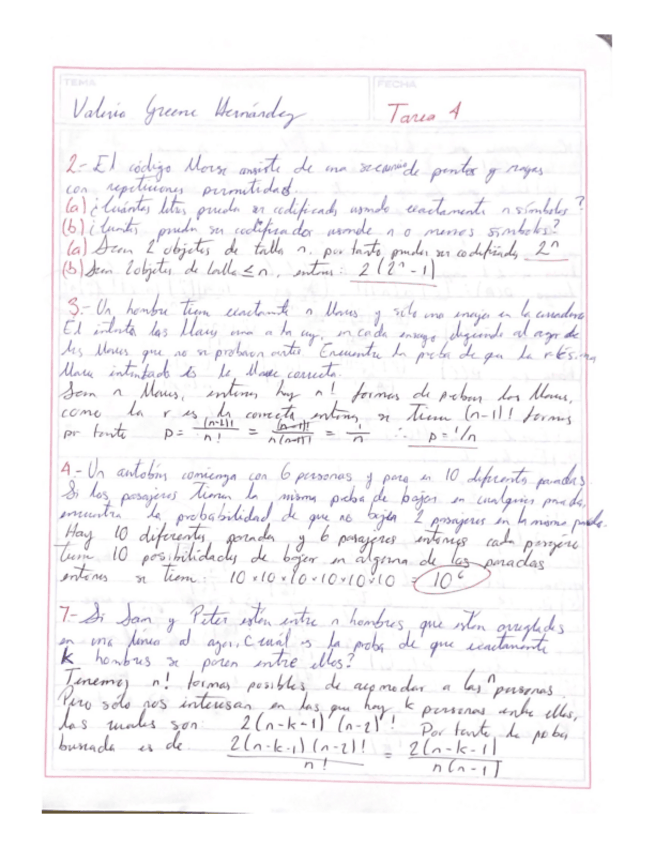 TEMA FECHA
Valeria Greene Hernández Tarea 4
2.- El código Morse consiste de una secuencia de puntos y rayas
con repeticiones permitidas.
(a) ¿Cuántas letras pueden ser codificadas usando exactamente n símbolos?
(b) ¿Cuántas pueden ser codificadas usando n o menos símbolos?
(a) Sean 2 objetos de talla n, por tanto, pueden ser codificadas 2^n
(b) Sean 2 objetos de talla ≤ n, entonces: 2(2^n - 1)
3.- Un hombre tiene exactamente n llaves y sólo una encaja en la cerradura
El intenta las llaves una a la vez, en cada ensayo eligiendo al azar de
las llaves que no se probaron antes. Encuentre la proba de que la r-ésima
llave intentada es la llave correcta.
Sean n llaves, entonces hay n! formas de probar las llaves,
como la r es la correcta entonces se tienen (n-1)! formas
por tanto P = (n-1)!/n! = (n-1)!/n(n-1)! = 1/n ∴ p = 1/n
4.- Un autobús comienza con 6 personas y para en 10 diferentes paradas
Si los pasajeros tienen la misma proba de bajar en cualquier parada,
encuentra la probabilidad de que no bajen 2 pasajeros en la misma parada.
Hay 10 diferentes paradas y 6 pasajeros entonces cada pasajero
tiene 10 posibilidades de bajar en alguna de las paradas
entonces se tiene: 10×10×10×10×10×10 = 10^6
7.- Si Sam y Peter están entre n hombres que están arreglados
en una línea al azar. Cuál es la proba de que exactamente
k hombres se paren entre ellos?
Tenemos n! formas posibles de acomodar a las n personas.
Pero sólo nos interesan en las que hay k personas entre ellos,
las cuales son: 2(n-k-1)(n-2)! Por tanto la proba
buscada es de 2(n-k-1)(n-2)!/n! = 2(n-k-1)/n(n-1)